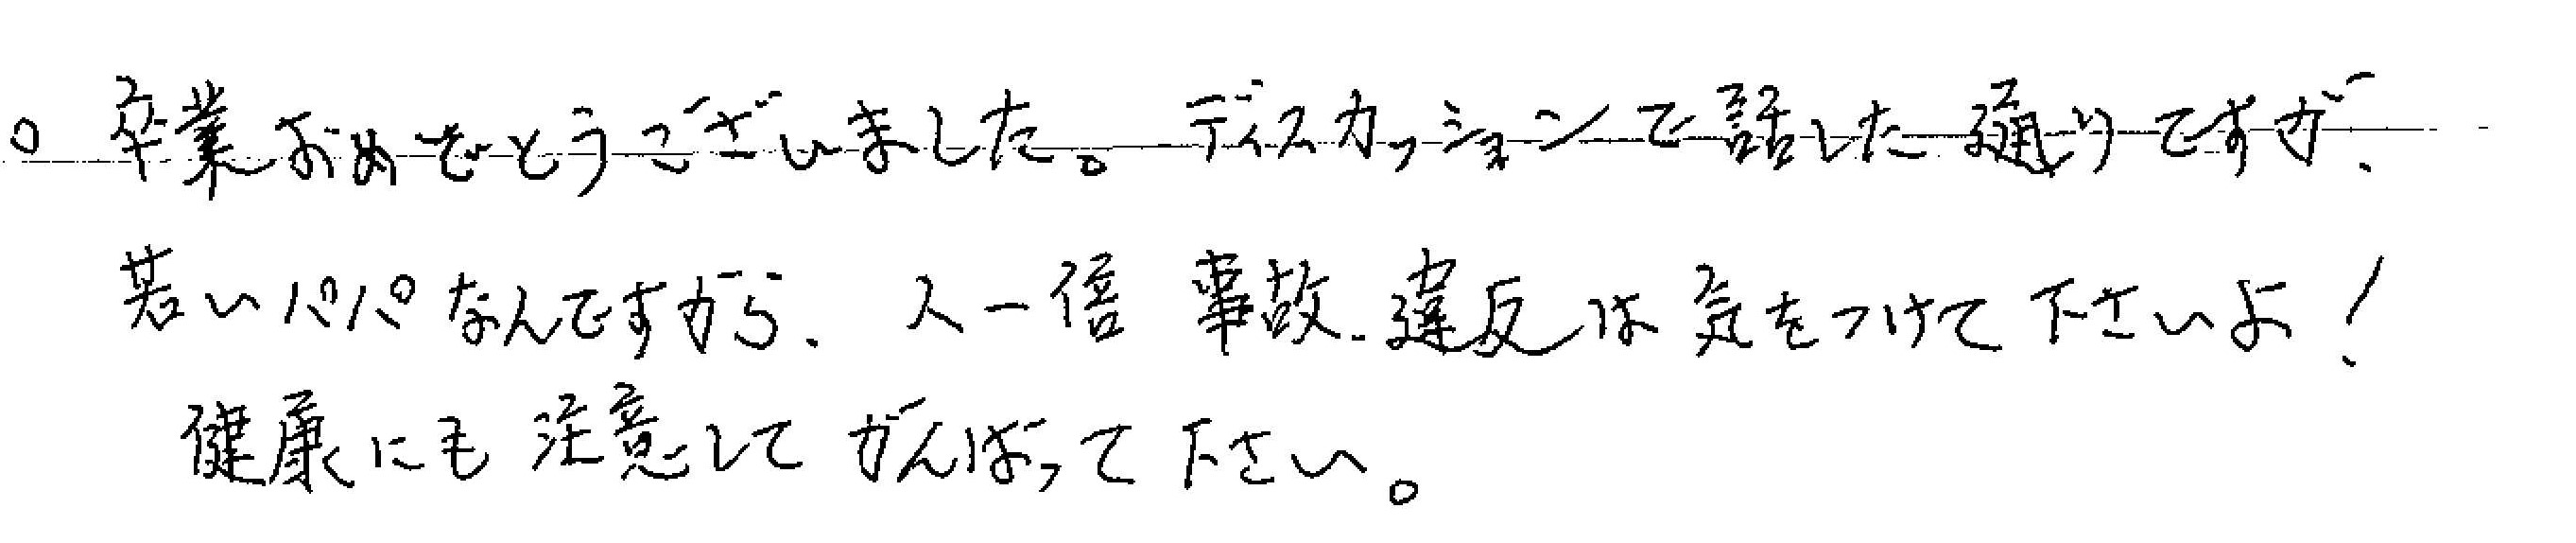 。卒業おめでとうございました。ディスカッションで話した通りですが、
若いパパなんですから、人一倍 事故、違反は気をつけて下さいよ!
健康にも注意してがんばって下さい。